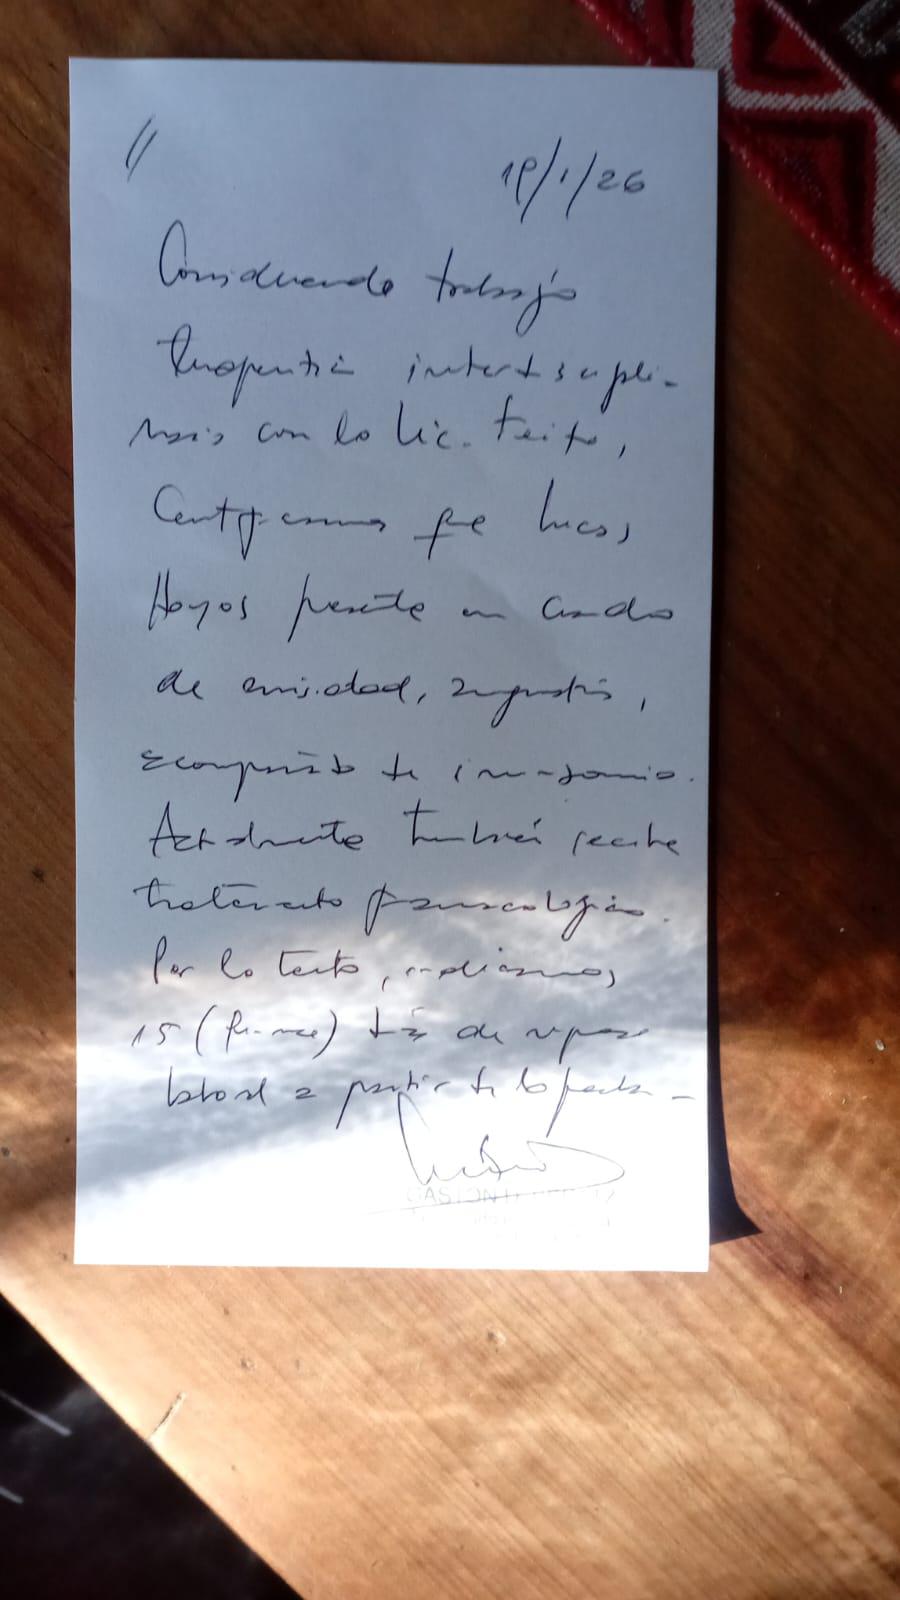 /1/26
Considerando trabajo
terapeutico interdiscipli-
nario con la Lic. Feito,
Certificamos que Lucas
Hoyos presenta un cuadro
de ansiedad, angustia,
acompañado de insomnio.
Actualmente también recibe
tratamiento farmacológico.
Por lo tanto, indicamos
15 (quince) días de reposo
laboral a partir de la fecha -
GASTON